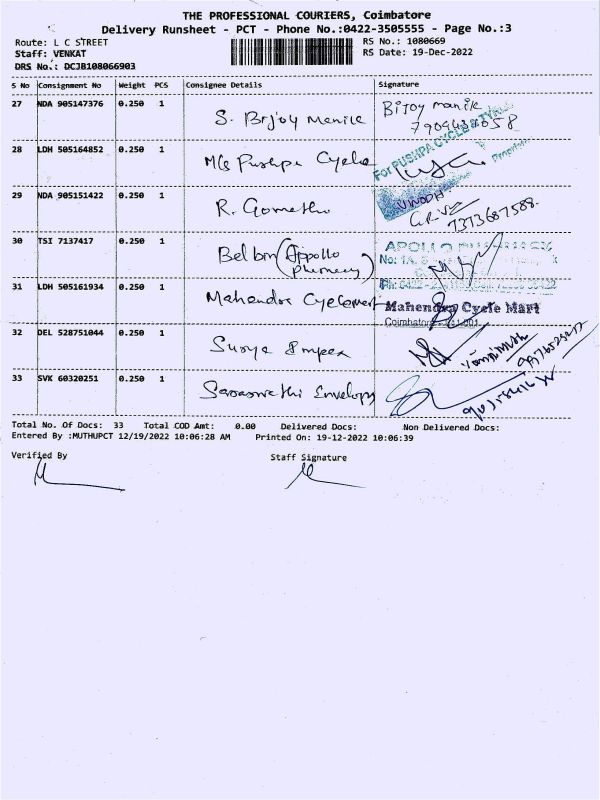 THE PROFESSIONAL COURIERS, Coimbatore
Delivery Runsheet - PCT - Phone No.:0422-3505555 - Page No.:3
Route: L C STREET
RS No.: 1080669
Staff: VENKAT
RS Date: 19-Dec-2022
DRS No.: DCJB108066903
S No Consignment No Weight PCS Consignee Details Signature
27 NDA 905147376 0.250 1 S. Bijoy Manick Bijoy manik
28 LDH 505164852 0.250 1 M/s Pushpa Cycle For PUSHPA CYCLE Proprietor
29 NDA 905151422 0.250 1 R. Gomathi VINODH
7373687588
30 TSI 7137417 0.250 1 Bell bm (Appollo APOLLO PHARMACY
Pharmacy) No: 1A,
31 LDH 505161934 0.250 1 Mahendra Cyclemart Mahendra Cycle Mart
Coimbatore - 641 001
32 DEL 528751044 0.250 1 Surya Impex
33 SVK 60320251 0.250 1 Saraswathi Envelops
Total No. Of Docs: 33 Total COD Amt: 0.00 Delivered Docs: Non Delivered Docs:
Entered By :MUTHUPCT 12/19/2022 10:06:28 AM Printed On: 19-12-2022 10:06:39
Verified By Staff Signature